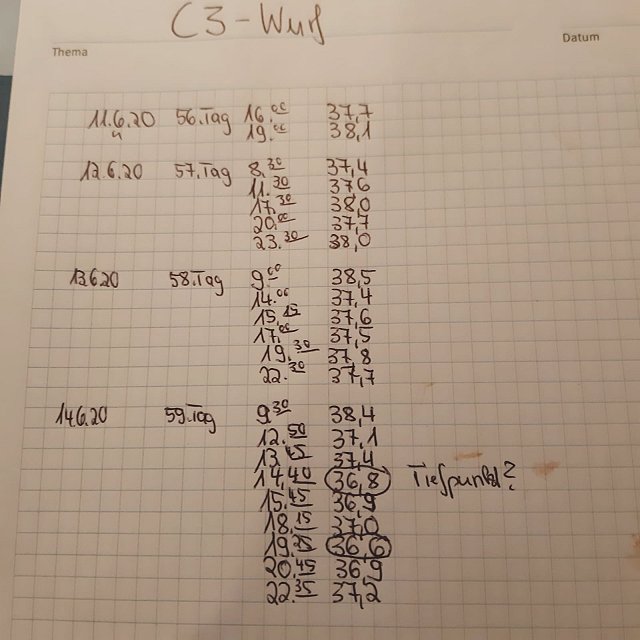 C3-Wurf
Thema
Datum
11.6.20 56.Tag 16.00 37,7
19.00 38,1
12.6.20 57.Tag 8.30 37,4
11.30 37,6
17.30 38,0
20.00 37,7
23.30 38,0
13.6.20 58.Tag 9.00 38,5
14.00 37,4
15.15 37,6
17.00 37,5
19.30 37,8
22.30 37,7
14.6.20 59.Tag 9.30 38,4
12.50 37,1
13.45 37,4
14.40 36,8 Tiefpunkt?
15.45 36,9
18.15 37,0
19.25 36,6
20.45 36,9
22.35 37,2